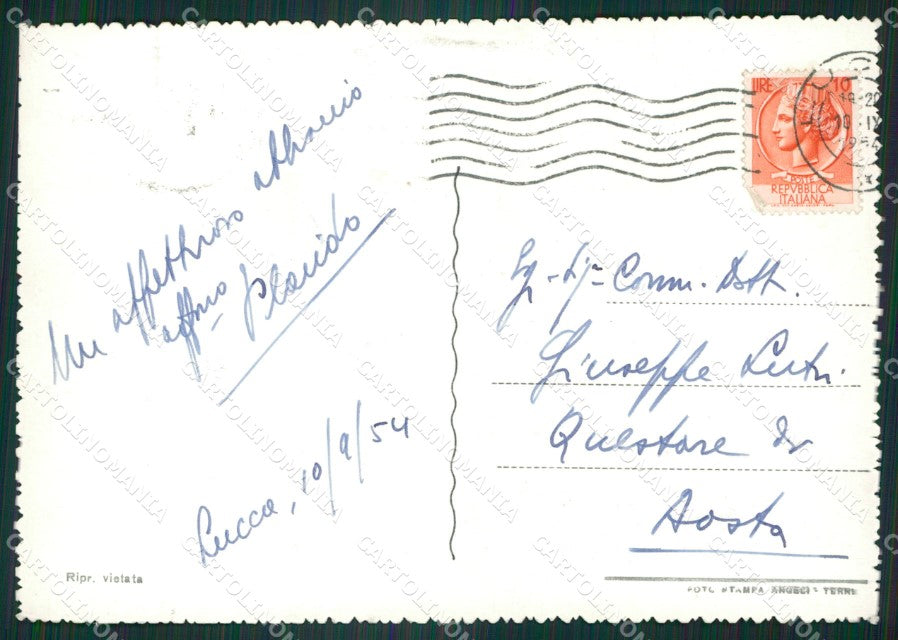 Un affettuoso abbraccio
aff.mo Placido
Lucca, 10/9/54
Ripr. vietata
LIRE 10
POSTE
REPVBBLICA
ITALIANA
18-20
10·IX
1954
Comm. Dott.
Giuseppe
Questore di
Aosta
FOTO STAMPA ANGELI - TERNI
CARTOLINOMANIA